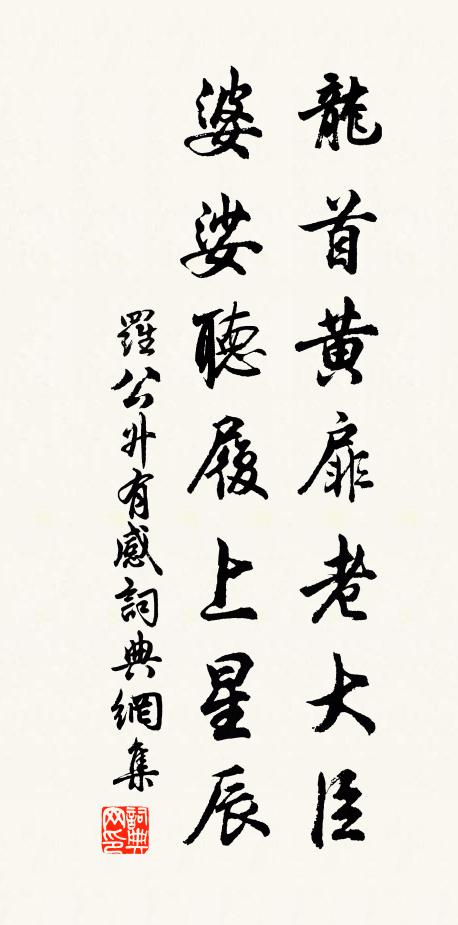 龍首黄扉老大臣
婆娑聽履上星辰
羅公升有感詞典網集
詞典網印